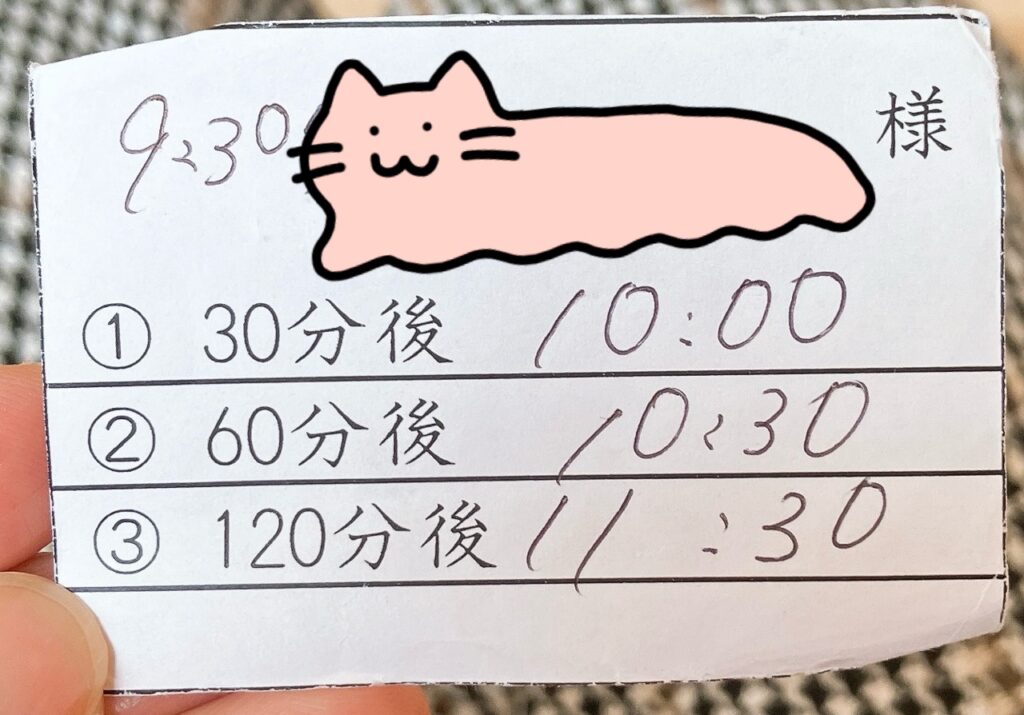 9:30 様
① 30分後 10:00
② 60分後 10:30
③ 120分後 11:30